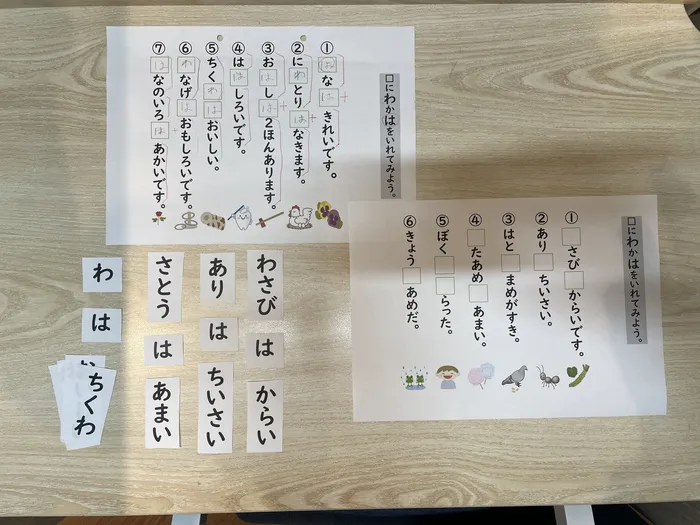 □にわかはをいれてみよう。
①はなはきれいです。
②にわとりはなきます。
③おはしは2ほんあります。
④ははしろいです。
⑤ちくわはおいしい。
⑥わなげはおもしろいです。
⑦はなのいろはあかいです。
□にわかはをいれてみよう。
①□さび□からいです。
②あり□ちいさい。
③はと□まめがすき。
④□たあめ□あまい。
⑤ぼく□□らった。
⑥きょう□あめだ。
わさび は からい
あり は ちいさい
さとう は あまい
わ
は
ちくわ